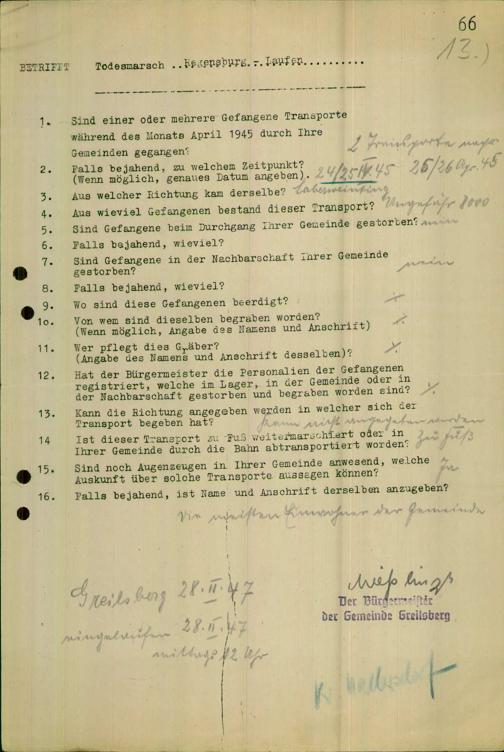 66
13.)
BETRIFFT Todesmarsch ..Regensburg - Laufen..........
1. Sind einer oder mehrere Gefangene Transporte
während des Monats April 1945 durch Ihre
Gemeinden gegangen?
2 Transporte
2. Falls bejahend, zu welchem Zeitpunkt?
(Wenn möglich, genaues Datum angeben). 24/25 IV. 45 25/26 Apr. 45
3. Aus welcher Richtung kam derselbe?
4. Aus wieviel Gefangenen bestand dieser Transport? Ungefähr 8000
5. Sind Gefangene beim Durchgang Ihrer Gemeinde gestorben? nein
6. Falls bajahend, wieviel?
7. Sind Gefangene in der Nachbarschaft Ihrer Gemeinde
gestorben? nein
8. Falls bejahend, wieviel?
9. Wo sind diese Gefangenen beerdigt?
1o. Von wem sind dieselben begraben worden?
(Wenn möglich, Angabe des Namens und Anschrift)
11. Wer pflegt dies Gräber?
(Angabe des Namens und Anschrift desselben)?
12. Hat der Bürgermeister die Personalien der Gefangenen
registriert, welche im Lager, in der Gemeinde oder in
der Nachbarschaft gestorben und begraben worden sind?
13. Kann die Richtung angegeben werden in welcher sich der
Transport begeben hat? kann nicht angegeben werden
14 Ist dieser Transport zu Fuß weitermarschiert oder in
Ihrer Gemeinde durch die Bahn abtransportiert worden? zu Fuß
15. Sind noch Augenzeugen in Ihrer Gemeinde anwesend, welche
Auskunft über solche Transporte aussagen können? Ja
16. Falls bejahend, ist Name und Anschrift derselben anzugeben?
Die meisten Einwohner der Gemeinde
Greilsberg 28.II.47
eingelaufen 28.II.47
mittags 12 Uhr
Der Bürgermeister
der Gemeinde Greilsberg